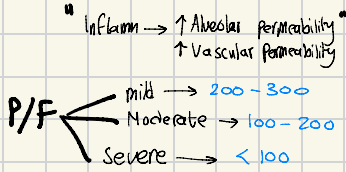 " Inflamn → ↑ Alveolar permeability "
↑ Vascular permeability
mild → 200 - 300
P/F Moderate → 100 - 200
Severe → < 100